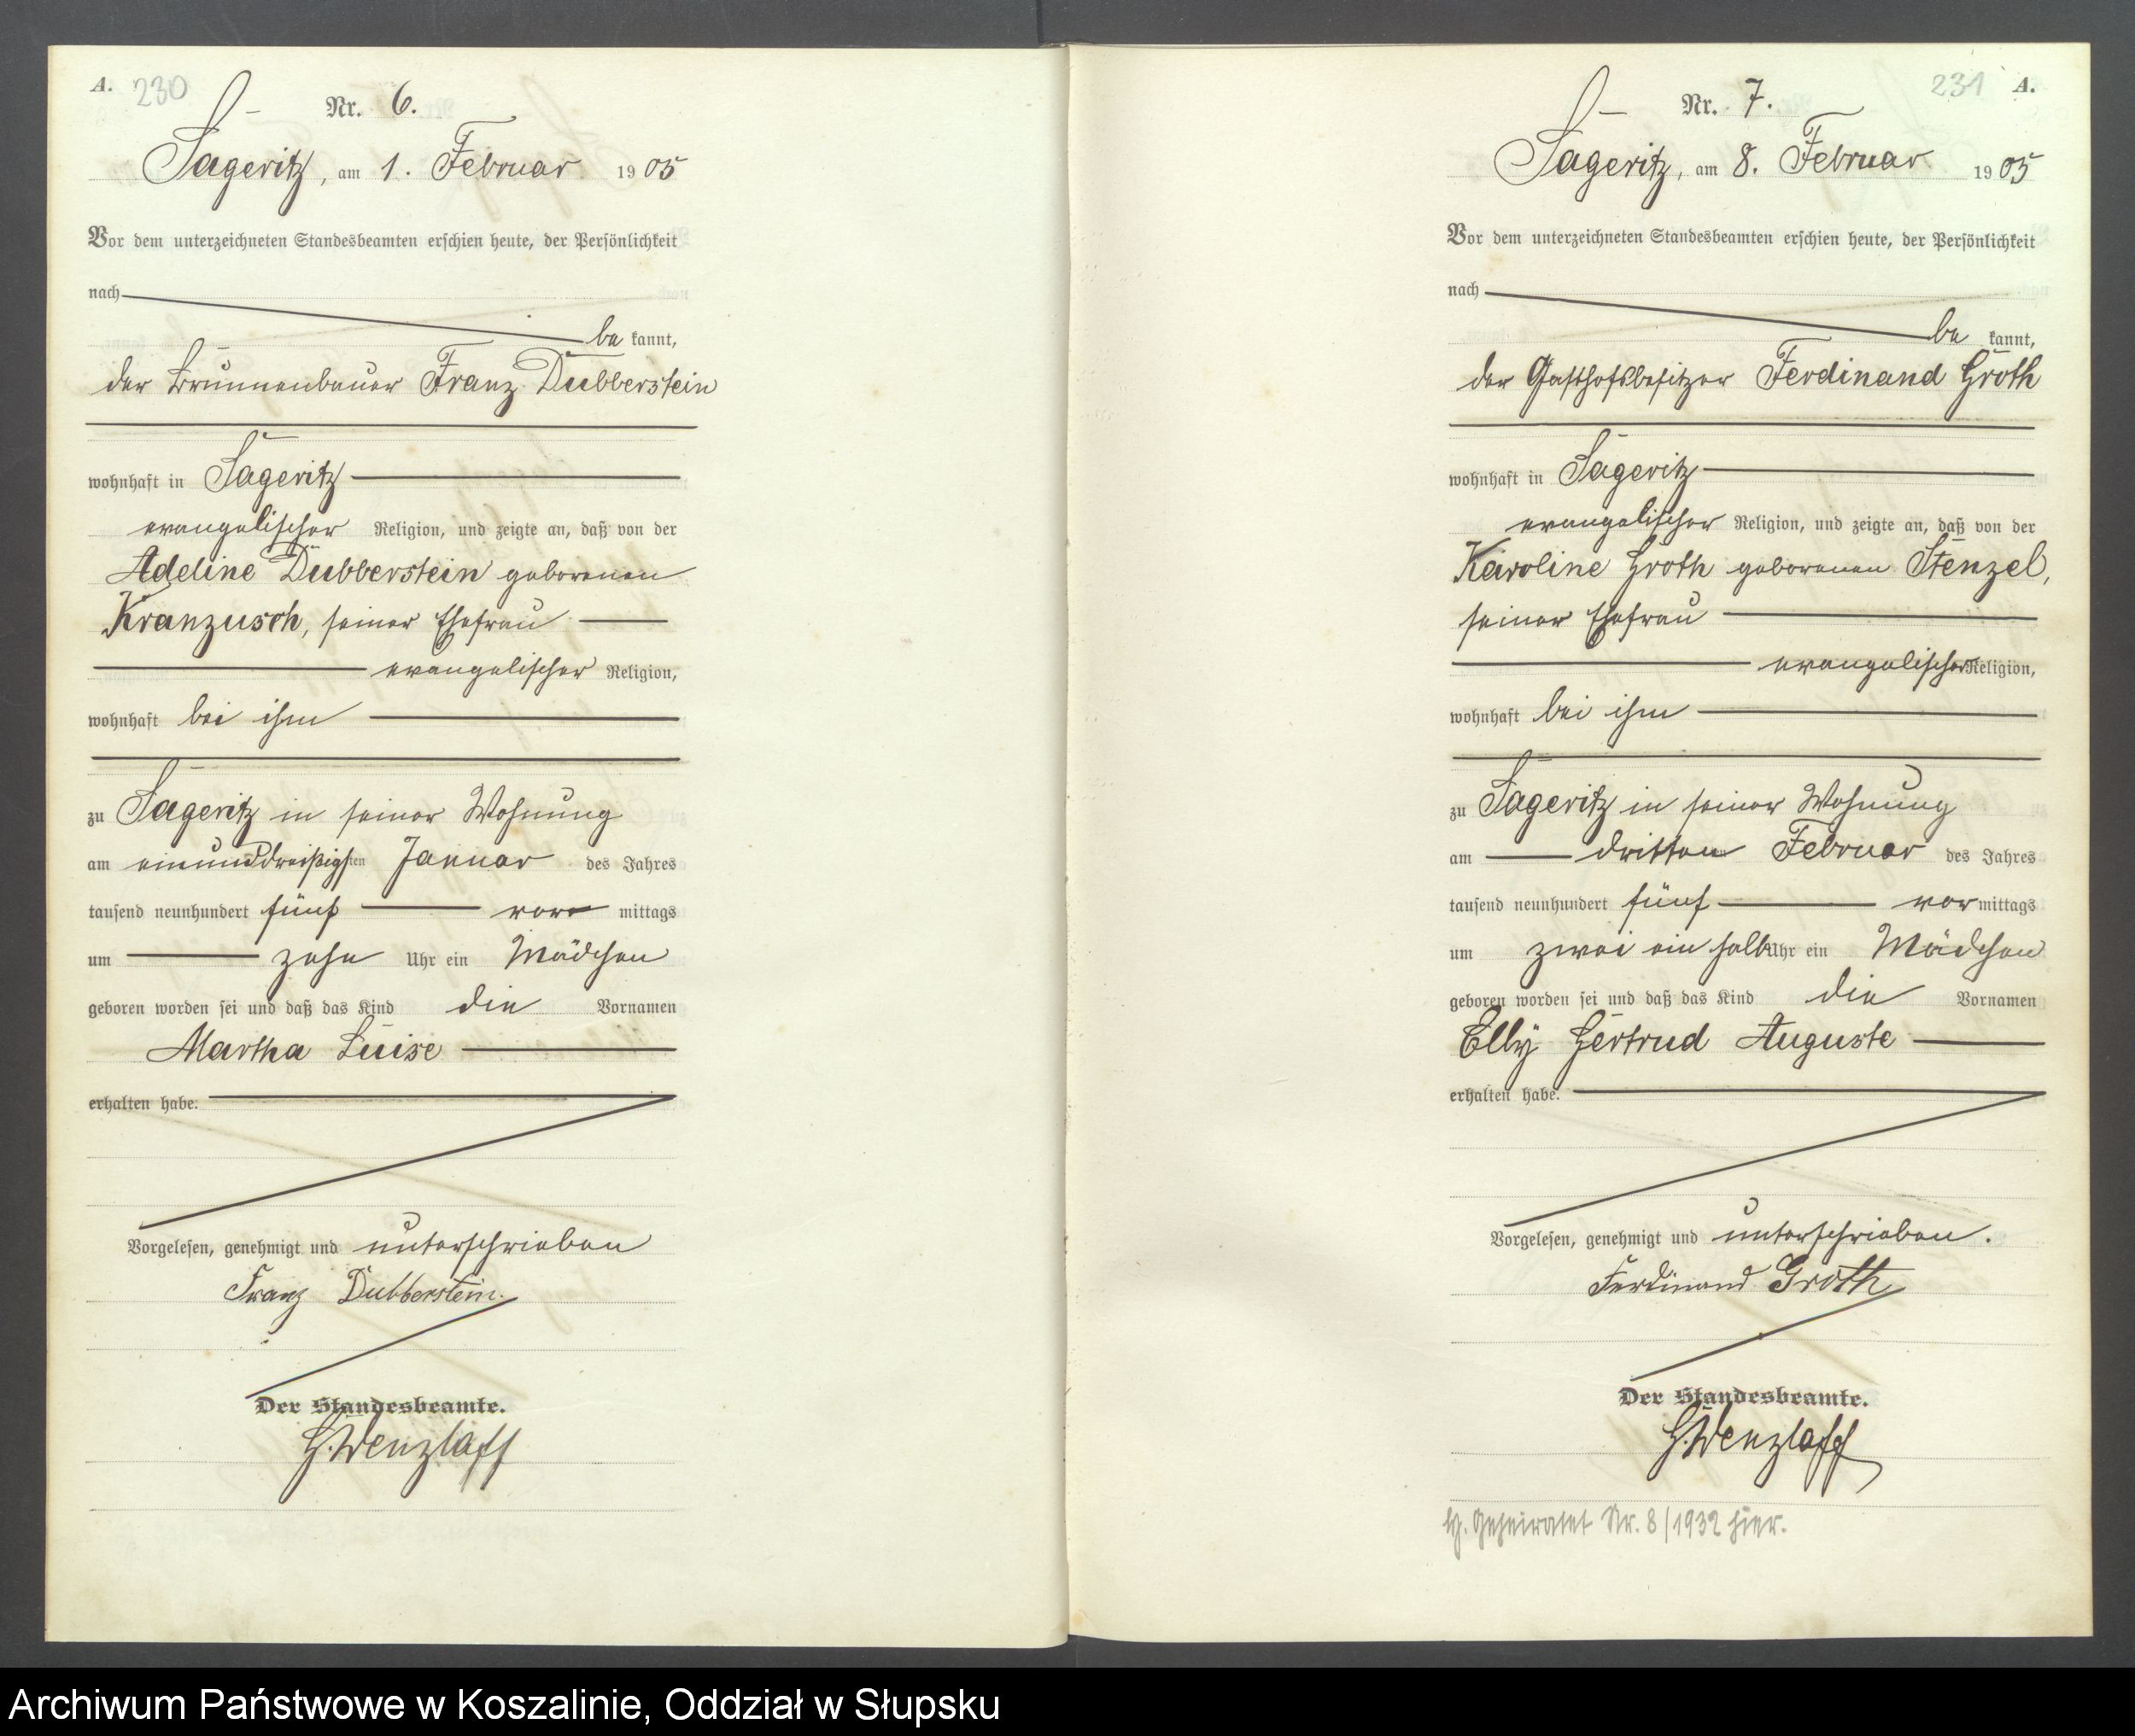 A. 230
Nr. 6.
Sageritz, am 1. Februar 1905
Vor dem unterzeichneten Standesbeamten erschien heute, der Persönlichkeit
nach
be kannt,
der Brunnenbauer Franz Dubberstein
wohnhaft in Sageritz
evangelischer Religion, und zeigte an, daß von der
Adeline Dubberstein geborenen
Kranzusch, seiner Ehefrau
evangelischer Religion,
wohnhaft bei ihm
zu Sageritz in seiner Wohnung
am einunddreißigsten Januar des Jahres
tausend neunhundert fünf vor mittags
um zehn Uhr ein Mädchen
geboren worden sei und daß das Kind die Vornamen
Martha Luise
erhalten habe.
Vorgelesen, genehmigt und unterschrieben
Franz Dubberstein.
Der Standesbeamte.
G. Wenzlaff
231 A.
Nr. 7.
Sageritz, am 8. Februar 1905
Vor dem unterzeichneten Standesbeamten erschien heute, der Persönlichkeit
nach
be kannt,
der Gasthofsbesitzer Ferdinand Groth
wohnhaft in Sageritz
evangelischer Religion, und zeigte an, daß von der
Karoline Groth geborenen Stenzel,
seiner Ehefrau
evangelischer Religion,
wohnhaft bei ihm
zu Sageritz in seiner Wohnung
am dritten Februar des Jahres
tausend neunhundert fünf vormittags
um zwei ein halb Uhr ein Mädchen
geboren worden sei und daß das Kind die Vornamen
Elly Gertrud Auguste
erhalten habe.
Vorgelesen, genehmigt und unterschrieben.
Ferdinand Groth
Der Standesbeamte.
G. Wenzlaff
Geheiratet Nr. 8/1932 hier.
Archiwum Państwowe w Koszalinie, Oddział w Słupsku